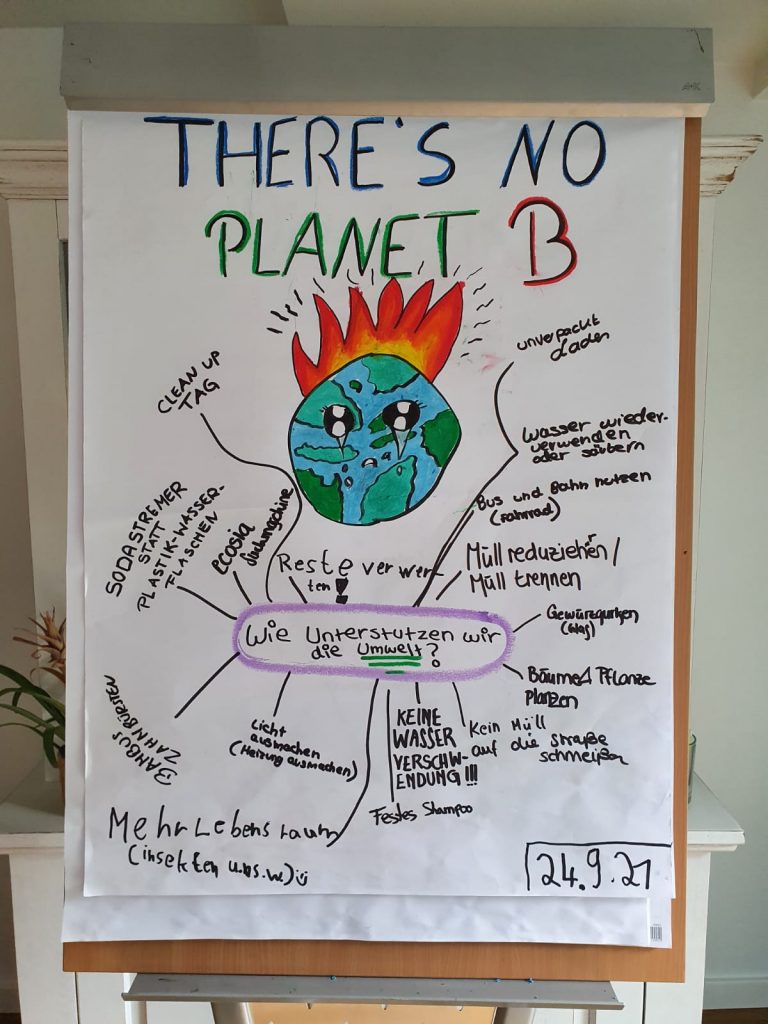 THERE'S NO
PLANET B
CLEAN UP
TAG
unverpackt
Laden
Wasser wieder-
verwenden
oder säubern
SODASTREMER
STATT
PLASTIK-WASSER-
FLASCHEN
ecosia
Suchmaschine
Bus und Bahn nutzen
(Fahrrad)
Reste verwer-
ten!
Müll reduziehren/
Müll trennen
Gewürzgurken
(Glas)
Wie Unterstützen wir
die Umwelt?
Bäume & Pflanze
planzen
BAMBUS
ZAHNBÜRSTEN
Licht
ausmachen
(Heizung ausmachen)
KEINE
WASSER
VERSCHW-
ENDUNG!!!
Kein Müll
auf die straße
schmeißen
Festes Shampoo
Mehr Lebensraum
(insekten u.s.w.)
24.9.21